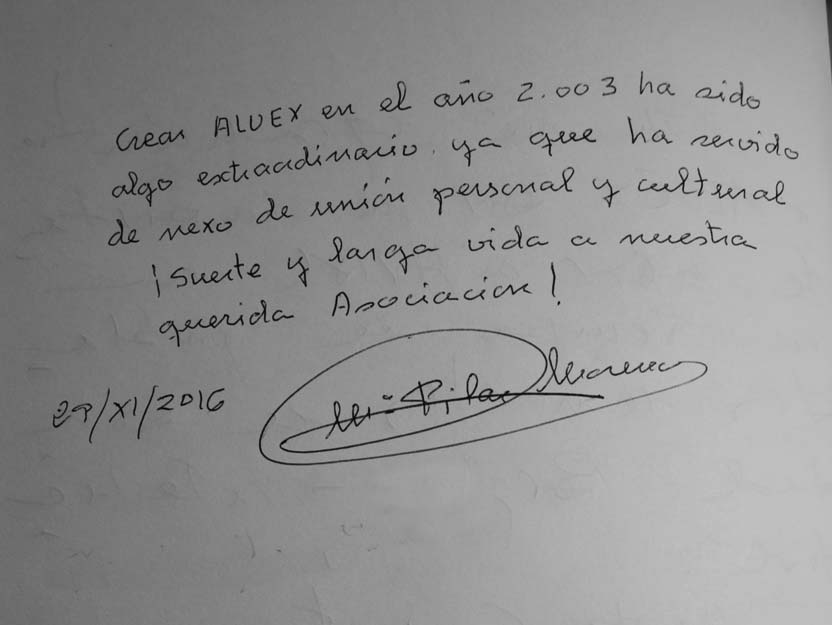 Crear ALUEX en el año 2.003 ha sido
algo extraordinario, ya que ha servido
de nexo de unión personal y cultural
¡Suerte y larga vida a nuestra
querida Asociacion!
29/XI/2016
Mª Pilar Moreno